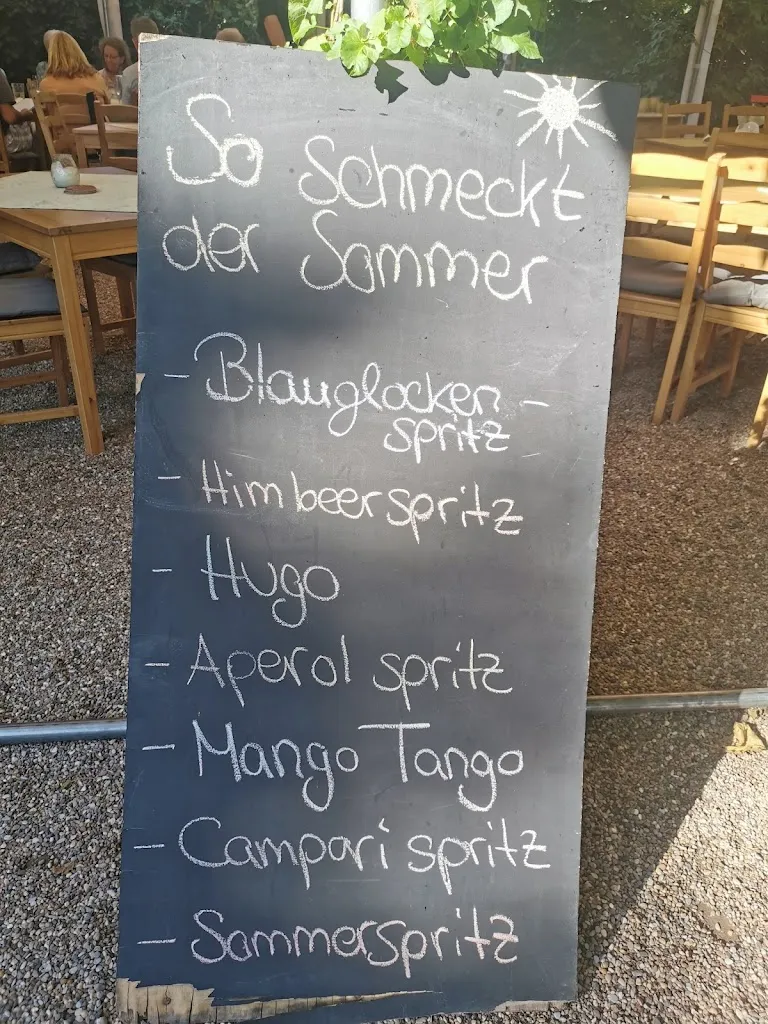 So Schmeckt
der Sommer
- Blauglocken-
spritz
- Himbeerspritz
- Hugo
- Aperol spritz
- Mango Tango
- Campari spritz
- Sommerspritz